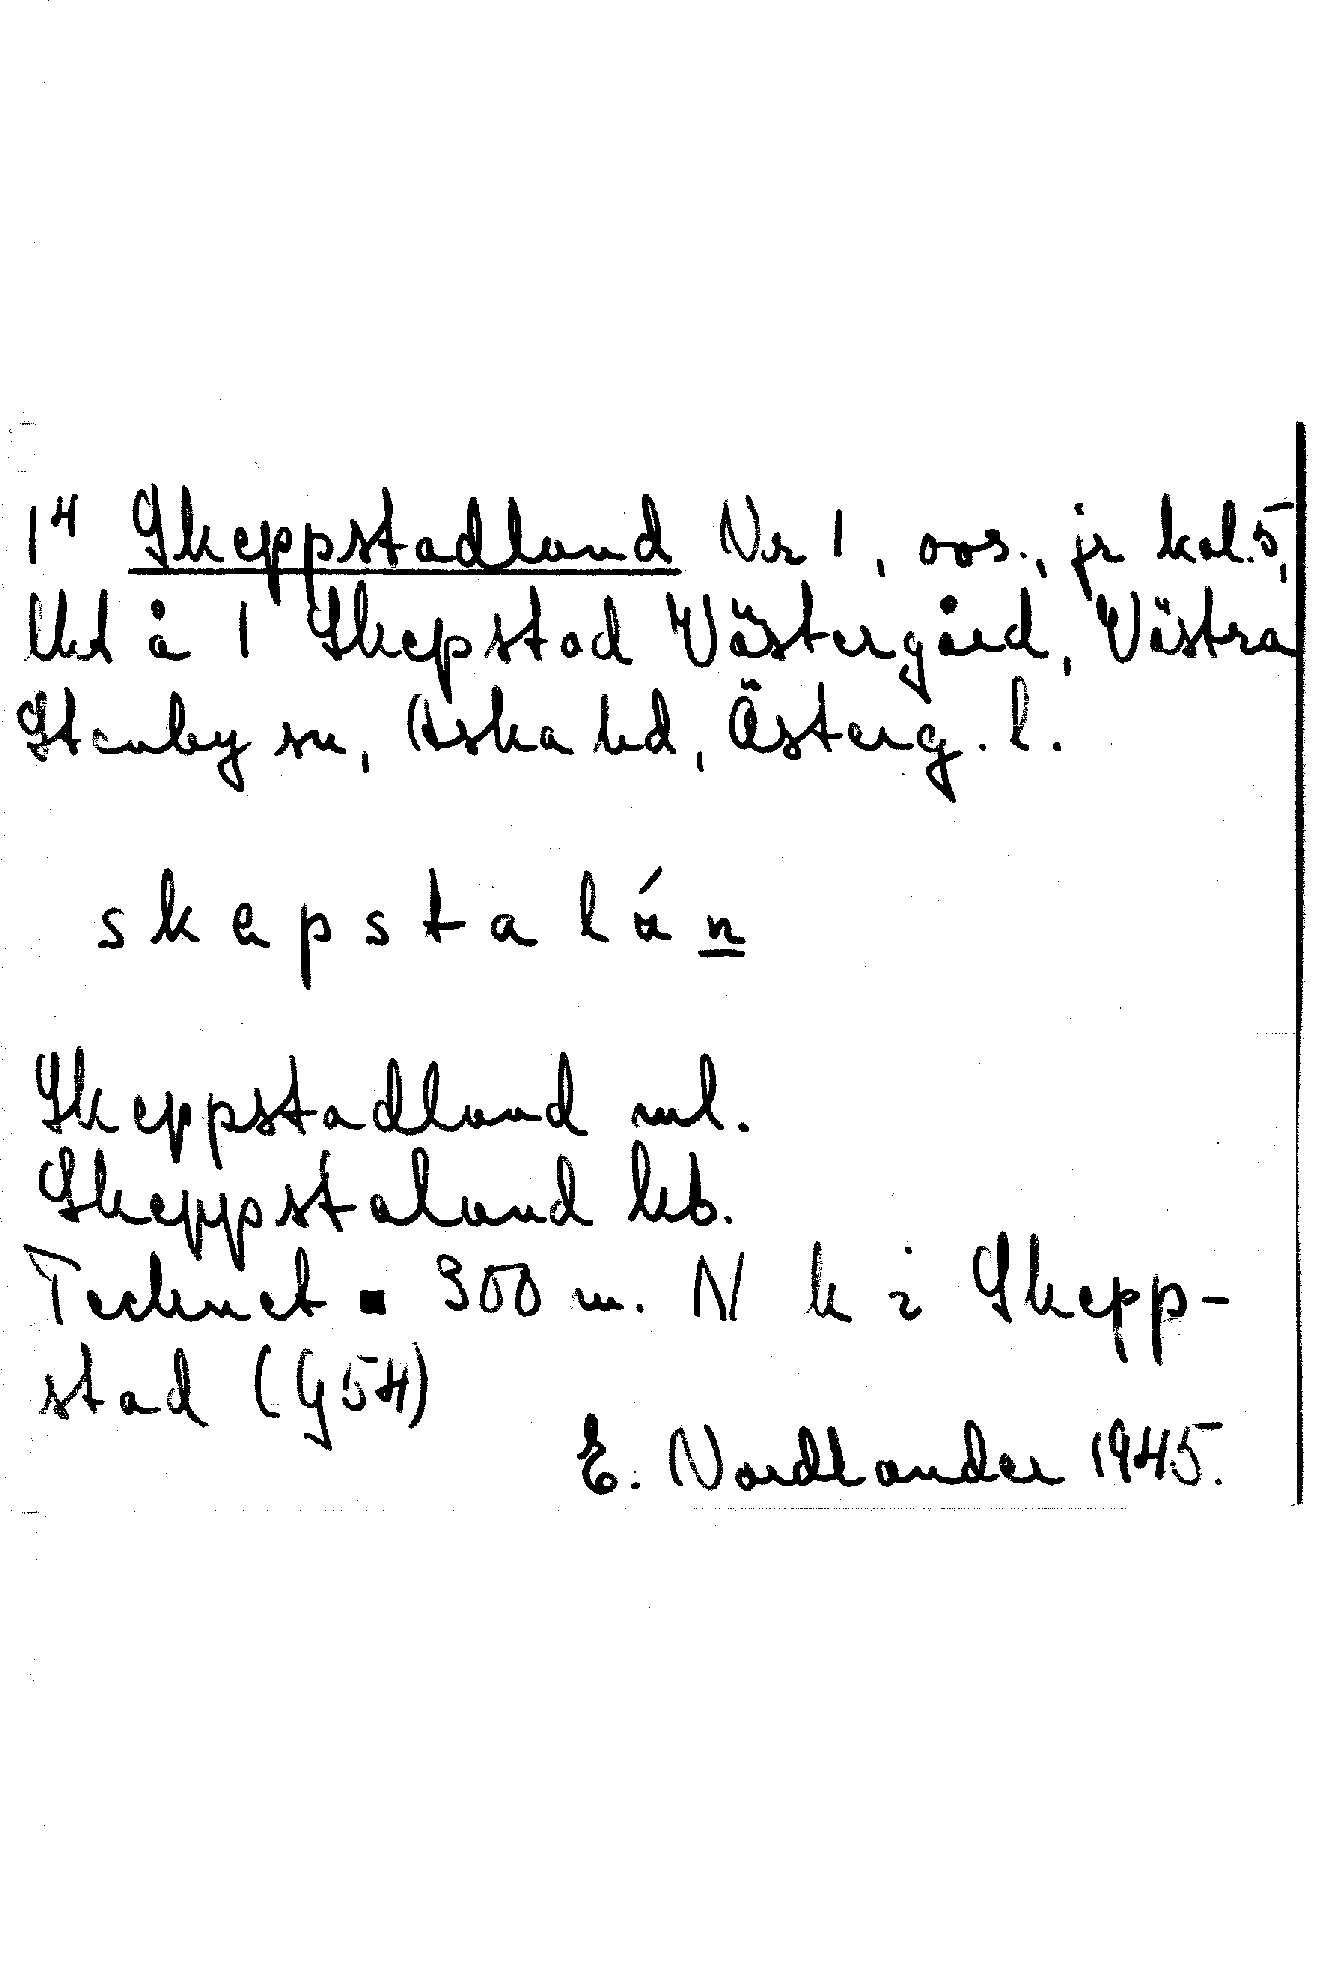 1⁴ Skeppstadlund Nr 1, oos., jr kol. 5,
Utd å 1 Skepstad Västergård, Västra
Stenby sn, Aska hd, Österg. l.
s k e p s t a l ú n
Skeppstadlund ml.
Skeppstalund kb.
Tecknet ▪ 300 m. N k i Skepp-
stad (G54)
E. Nordlander 1945.